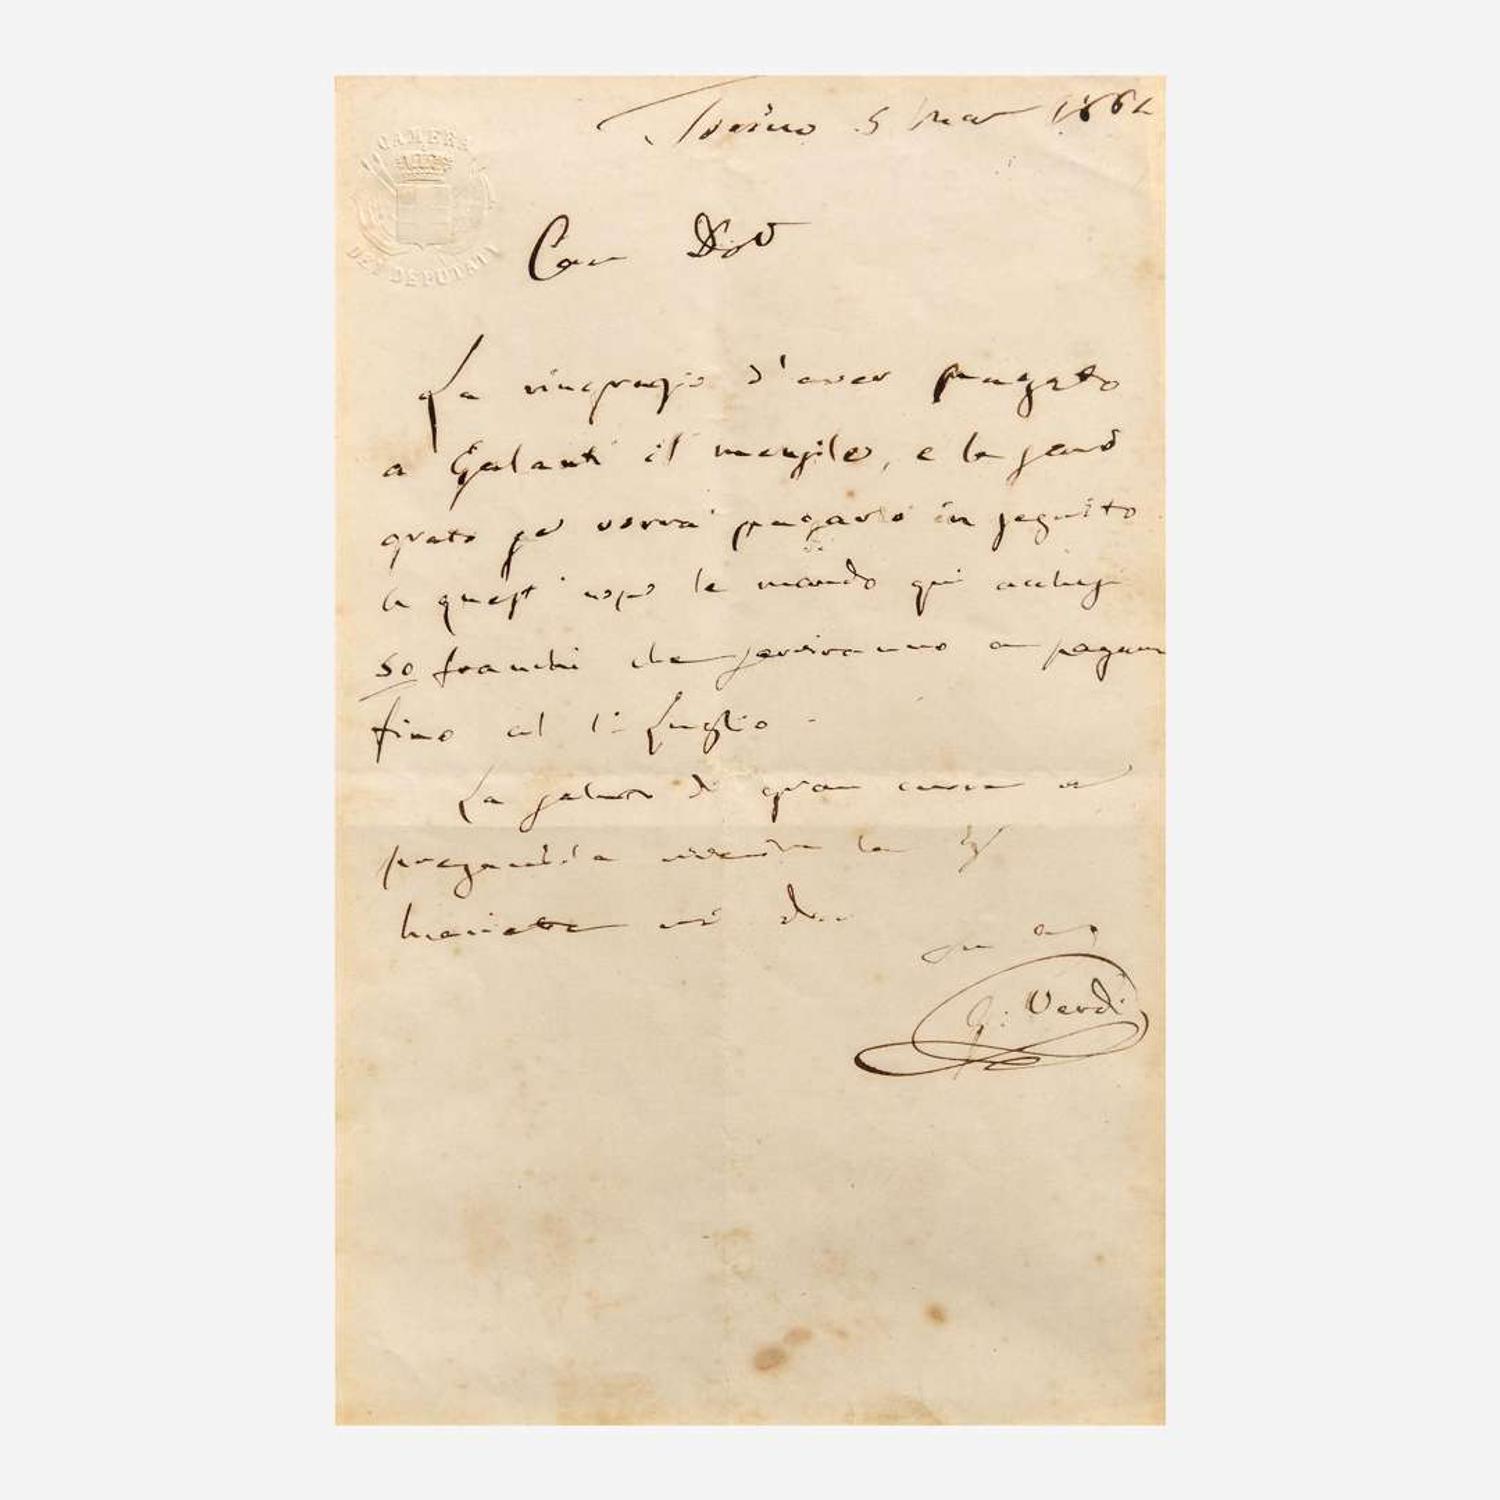 CAMERA
DEI DEPUTATI
Torino 5 Mar 186
Car Dot
La ringrazio d'aver pagato
a Galanti il mensile, e le sarò
grato se vorrà pagarlo in seguito
a quest' uopo le mando qui acchiusi
50 franchi che serviranno a pagare
fino al 1º Luglio.
La saluto di gran cuore e
pregandola riverire la
G: Verdi